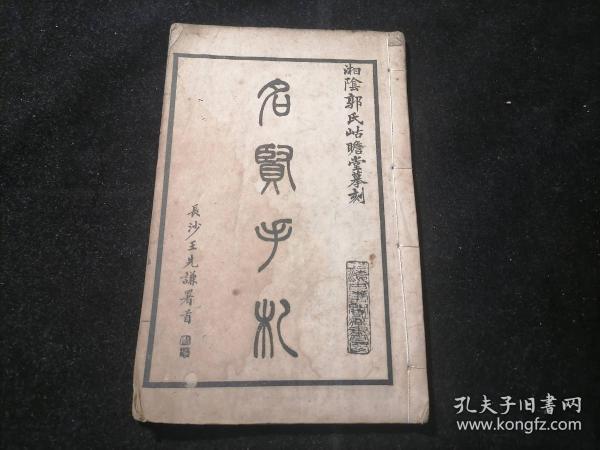 湘陰郭氏岵瞻堂摹刻
名賢手札
長沙王先謙署首
孔夫子旧书网
www.kongfz.com